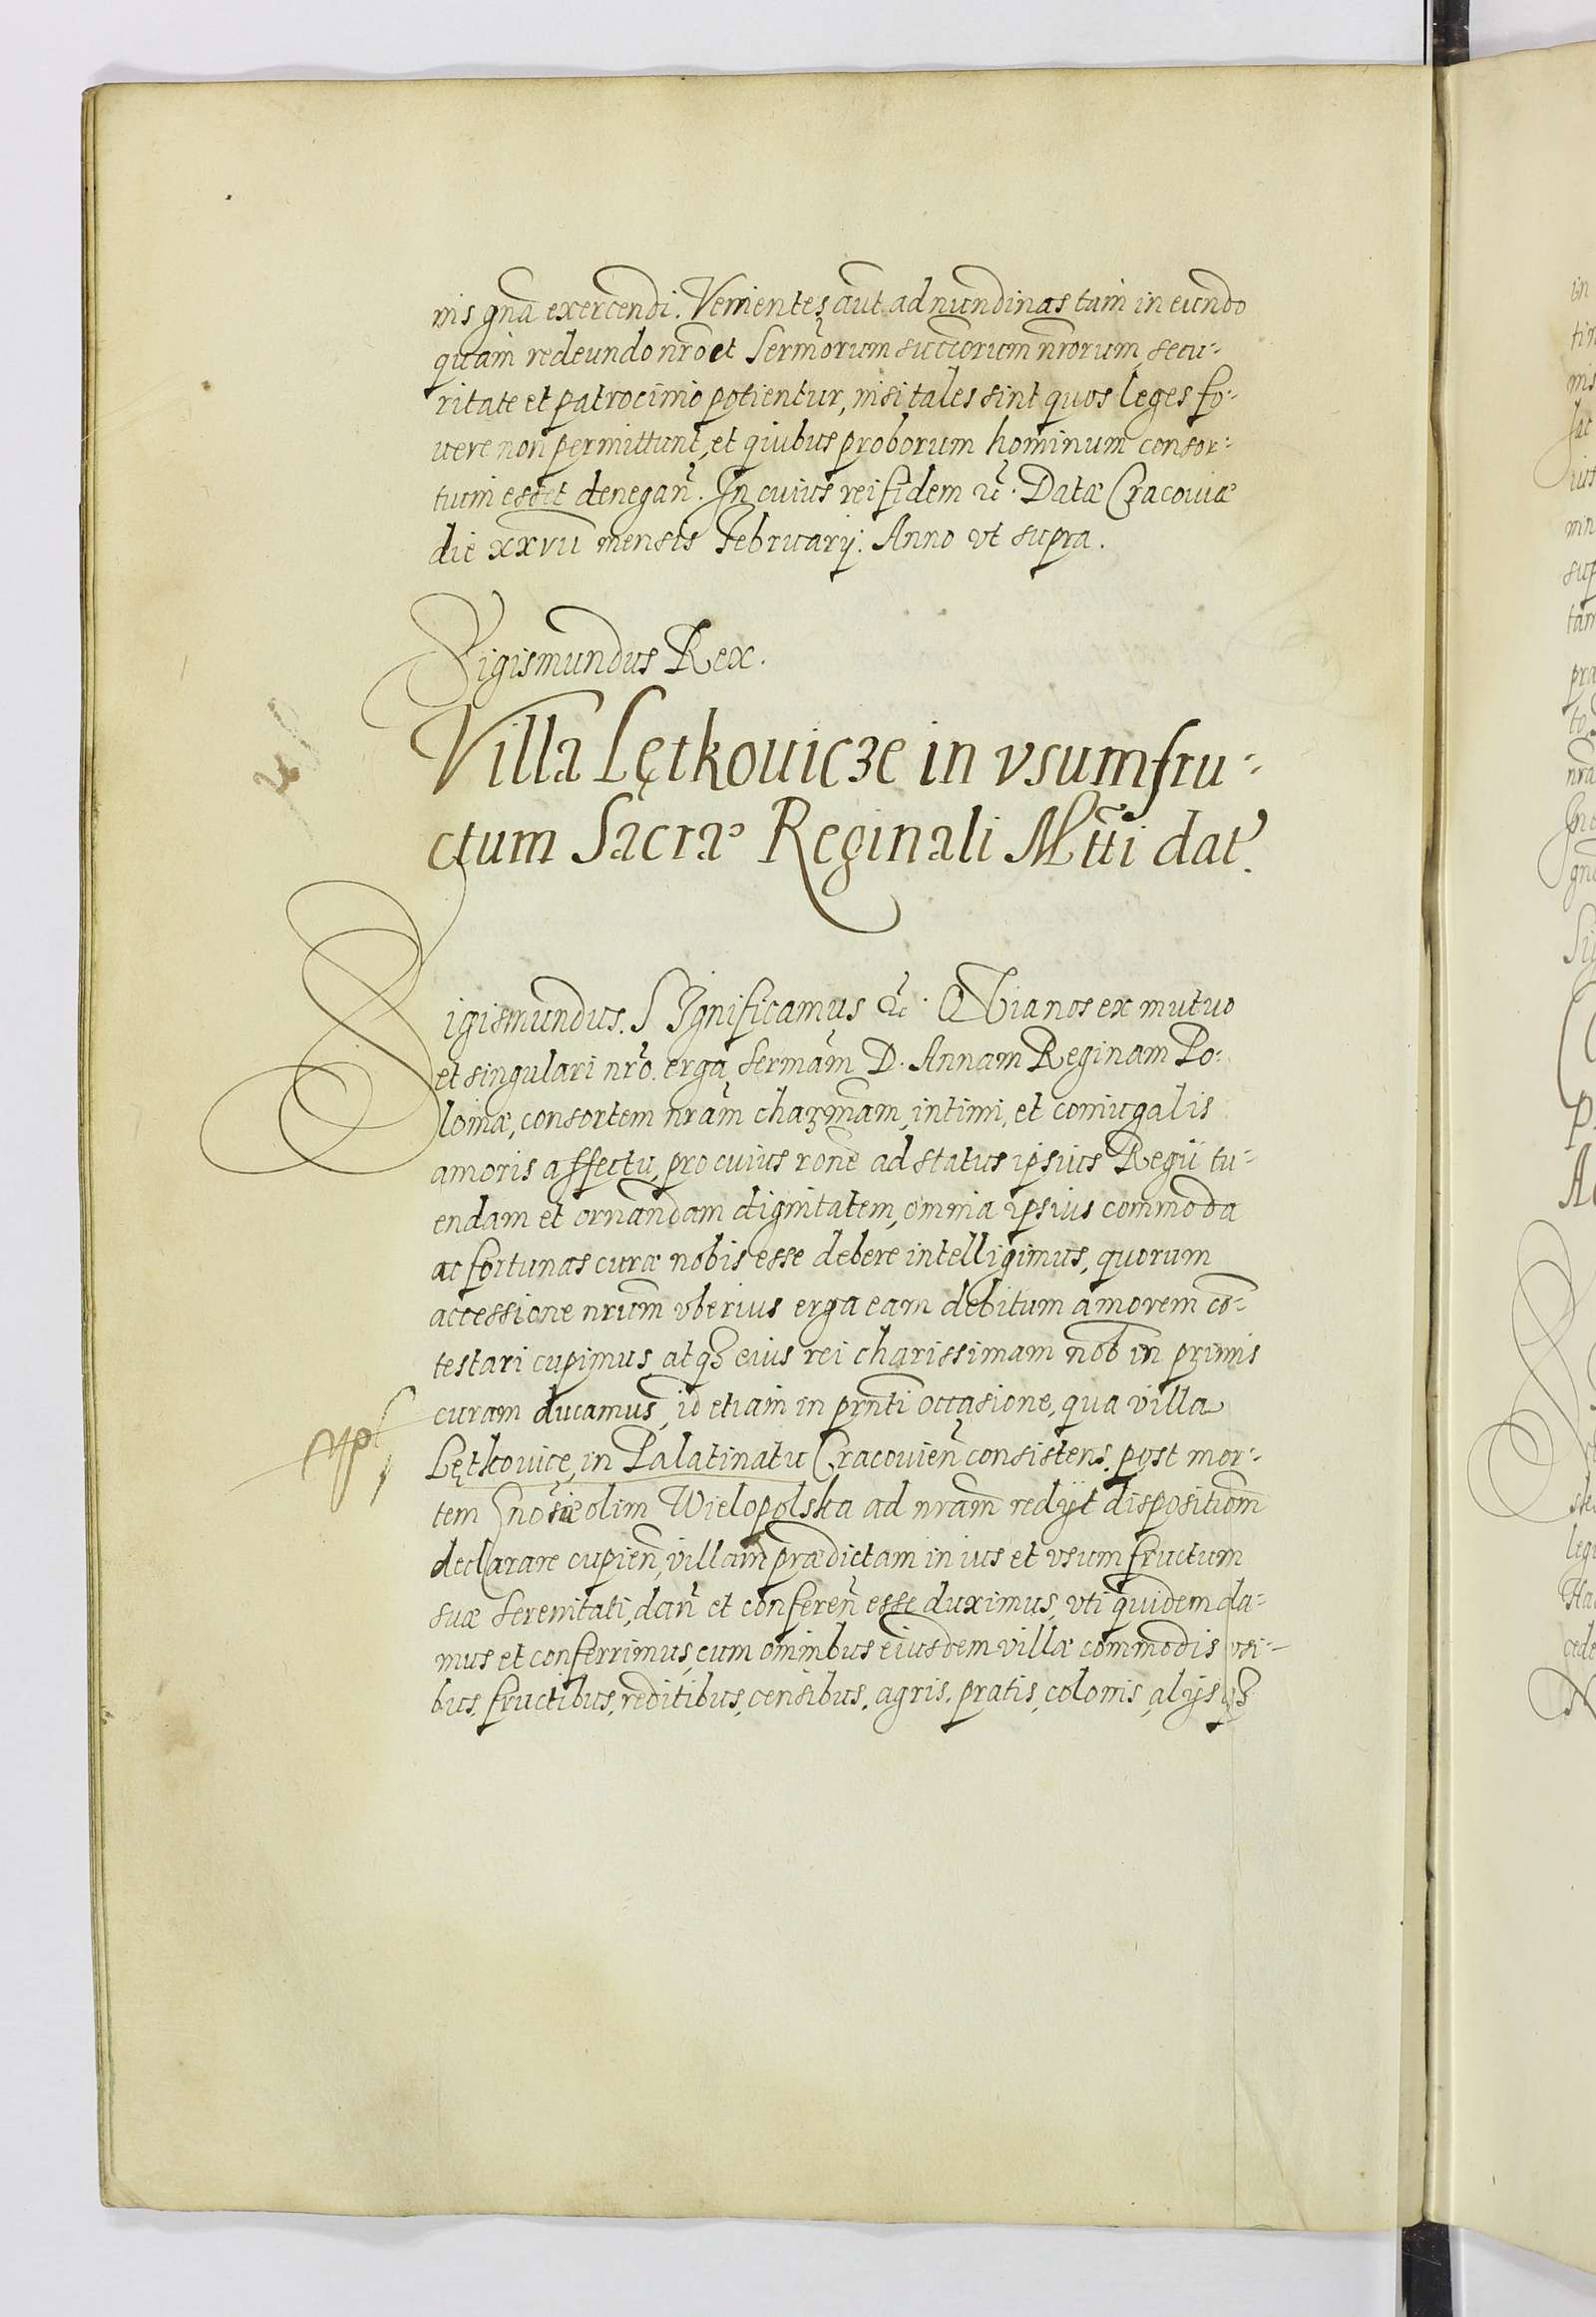 nis gña exercendi. Venientes aut̃ ad nundinas tam in eundo
quam redeundo nr̃o et Serm̃orum succ̃orum nr̃orum secu-
ritate et patrocinio potientur, nisi tales sint quos leges fo-
uere non permittunt, et quibus proborum hominum consor-
tium esset denegan̄. In cuius rei fidem &c̃. Datæ Cracouiæ
die xxvii mensis Februarij. Anno vt supra.
Sigismundus Rex.
Villa Lętkouicze in vsumfru-
ctum Sacræ Reginali Mtti dat̃.
Sigismundus. SIgnificamus &c̃. Quia nos ex mutuo
et singulari nr̃o erga Serm̃am D. Annam Reginam Po-
loniæ, consortem nr̃am chariss̃mam, intimi, et coniugalis
amoris affectu, pro cuius rõne ad status ipsius Regii tu-
endam et ornandam dignitatem, omnia ipsius commoda
ac fortunas curæ nobis esse debere intelligimus, quorum
accessione nr̃um vberius erga eam debitum amorem cõ-
testari cupimus atqʒ eius rei charissimam nob̃ in primis
curam ducamus, id etiam in pr̃nti occasione, qua villa
Lętkouice, in Palatinatu Cracouien̄ consistens, post mor-
tem Gnosæ olim Wielopolska ad nr̃am redijt dispositiõm
declarare cupien̄, villam prædictam in ius et vsum fructum
suæ Serenitati, dan̄ et conferen̄ esse duximus, vti quidem da-
mus et conferrimus, cum omnibus eiusdem villæ commodis vsi-
bus, fructibus, reditibus, censibus, agris, pratis, colonis, alijsqʒ